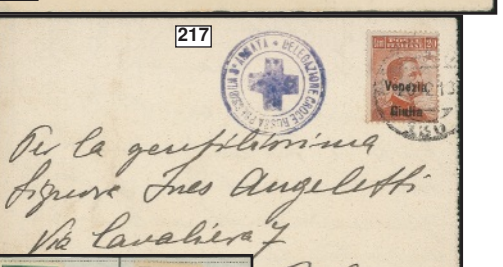 217
3ª ARMATA * DELEGAZIONE CROCE ROSSA
POSTE ITALIANE 20
Venezia
Giulia
Per la gentilissima
Signora Ines Angeletti
Via Cavaliera 7